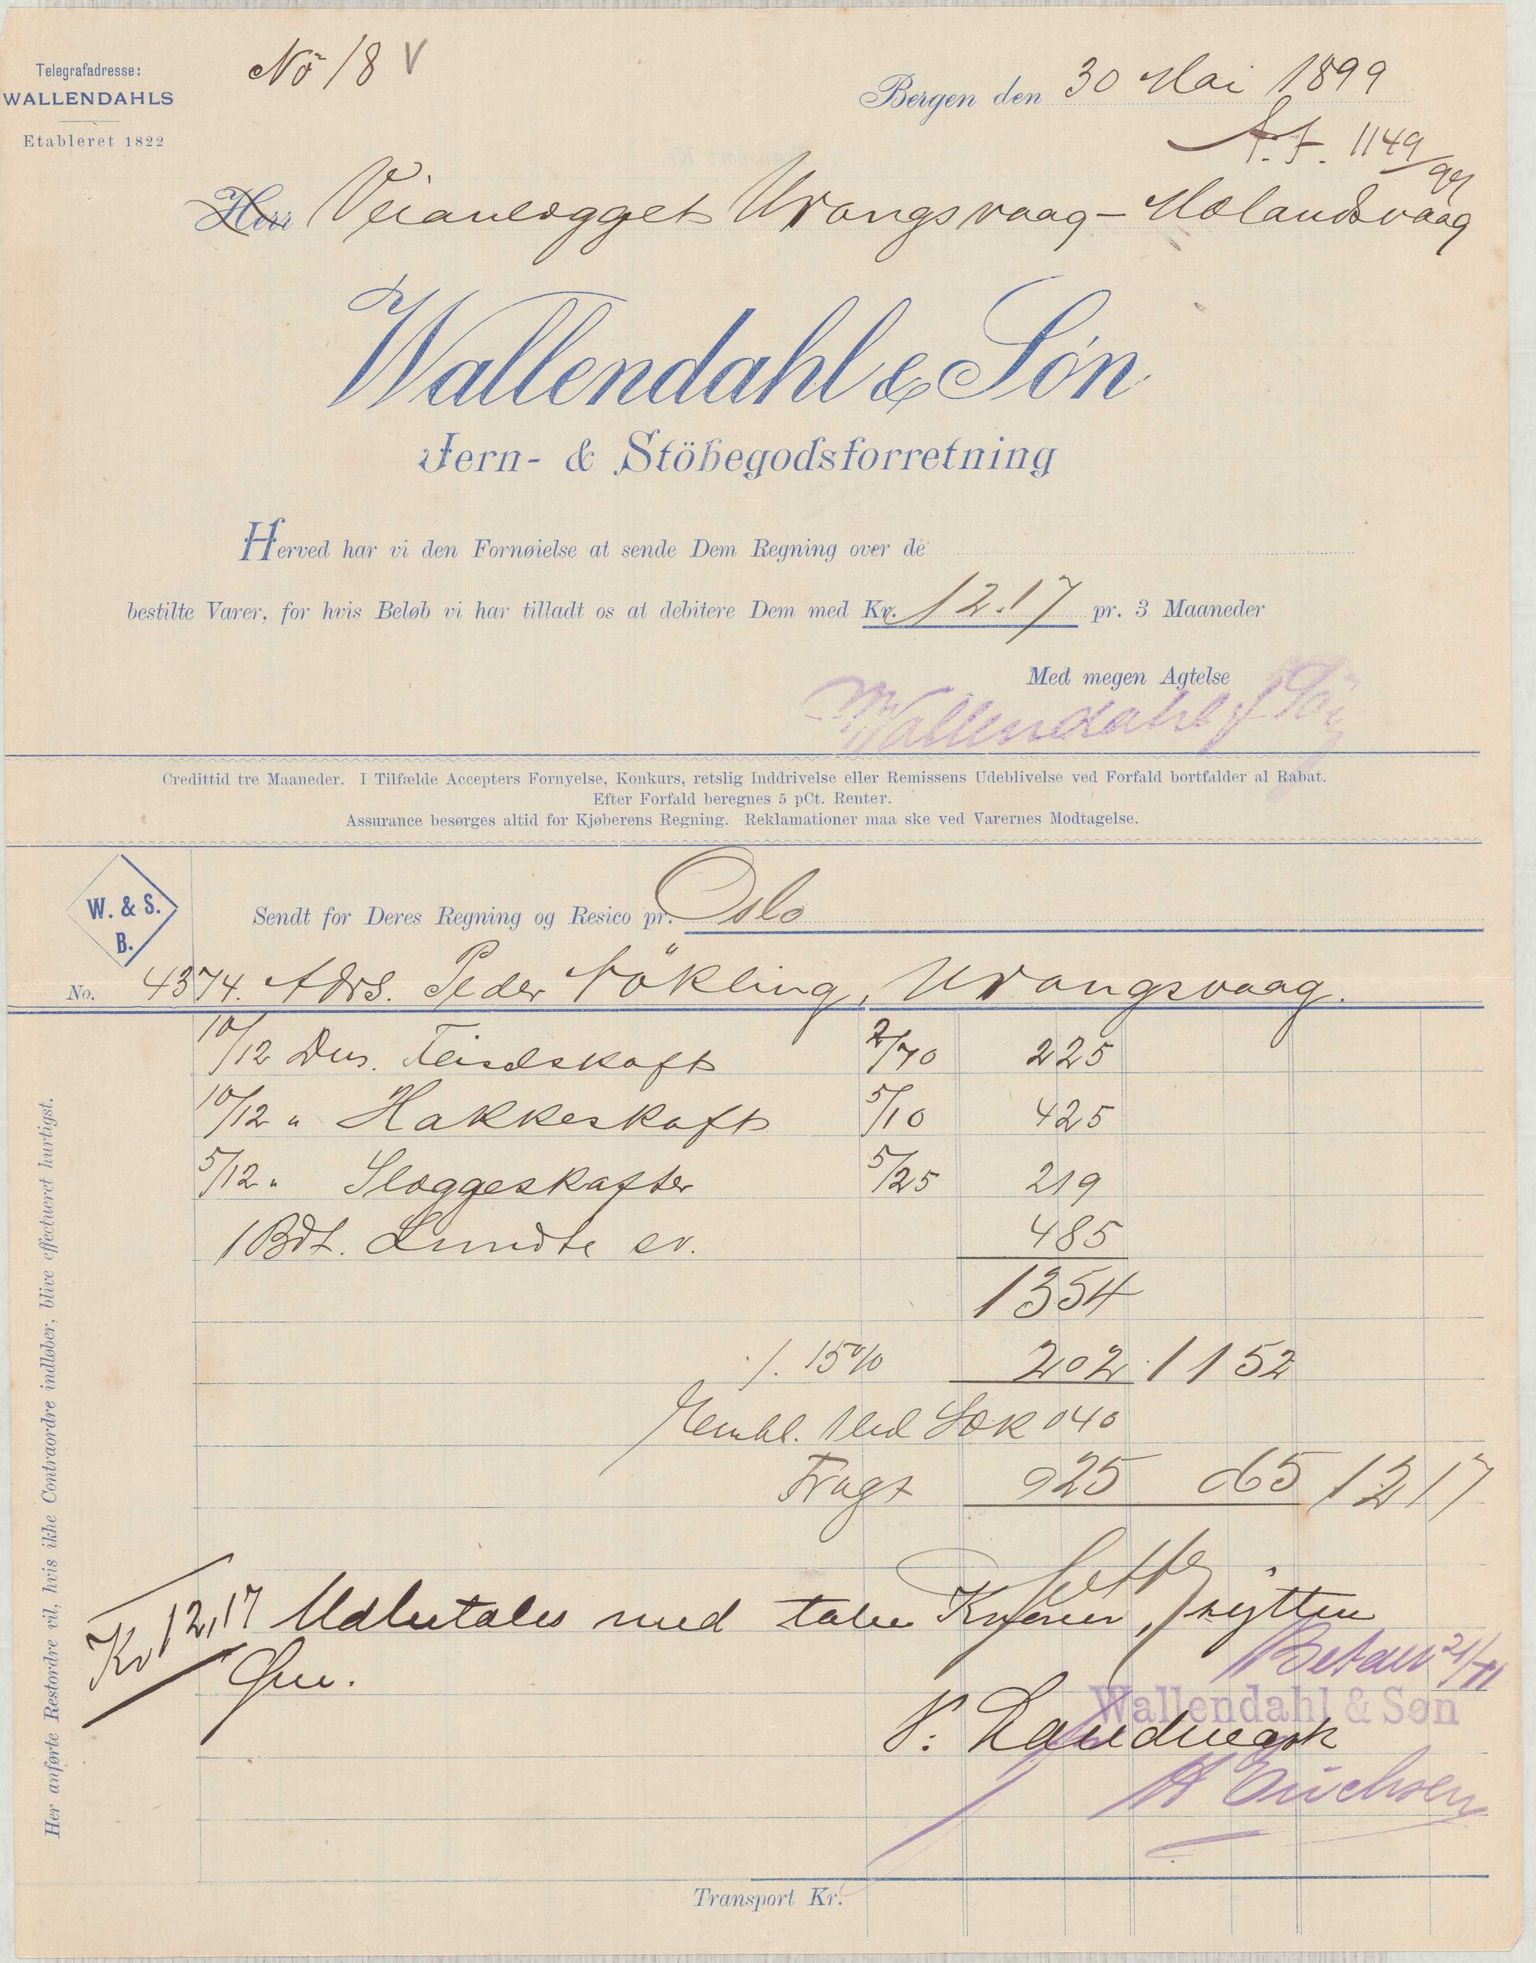 Telegrafadresse:
WALLENDAHLS
Etableret 1822
No 18 V
Bergen den 30 Mai 1899
A.J. 1149/99
Herr Veianlægget Vrangsvaag - Molandsvaag
Wallendahl & Søn
Jern- & Stöbegodsforretning
Herved har vi den Fornøielse at sende Dem Regning over de
bestilte Varer, for hvis Beløb vi har tilladt os at debitere Dem med Kr. 12.17 pr. 3 Maaneder
Med megen Agtelse
Wallendahl & Søn
Credittid tre Maaneder. I Tilfælde Accepters Fornyelse, Konkurs, retslig Inddrivelse eller Remissens Udeblivelse ved Forfald bortfalder al Rabat.
Efter Forfald beregnes 5 pCt. Renter.
Assurance besørges altid for Kjøberens Regning. Reklamationer maa ske ved Varernes Modtagelse.
W. & S.
B.
Sendt for Deres Regning og Resico pr. Oslo
No. 4374. Adrs. Peder Nökling, Vrangsvaag.
10/12 Dus. Feiselskaft 2/70 225
10/12 " Hakkeskaft 5/10 425
5/12 " Slæggeskafter 5/25 219
1 Bdt. Lundte sv. 485
1354
./. 15% 202 11 52
Embl. 1 Sæk 040
Fragt 025 065 12 17
Kr 12,17 Udbetales med tolv Kroner, sytten
Øre.
Betalt 21/11
Wallendahl & Søn
N: Landmark
H Erichsen
Transport Kr.
Her anførte Restordre vil, hvis ikke Contraordre indløber, blive effectueret hurtigst.